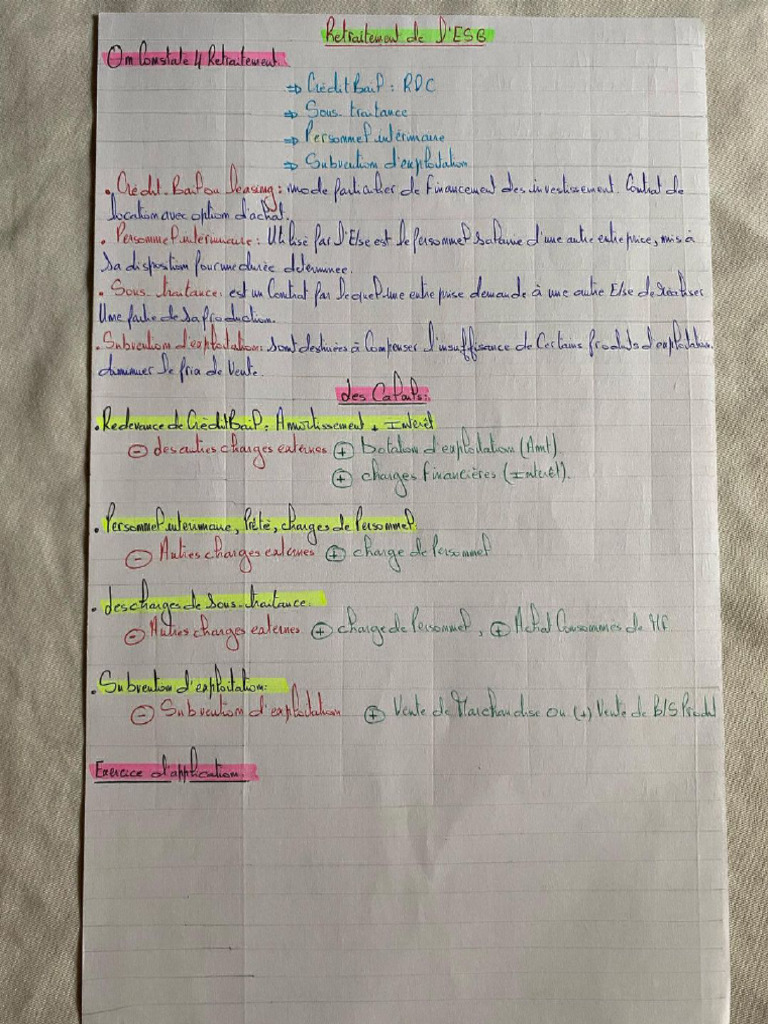 Retraitement de l'ESG
On Constate 4 Retraitement.
⇒ Crédit Bail : RDC
⇒ Sous-traitance
⇒ Personnel intérimaire
⇒ Subvention d'exploitation
• Crédit-Bail ou leasing : mode particulier de financement des investissement. Contrat de
location avec option d'achat.
• Personnel intérimaire : Utilisé par l'Else est le personnel salarié d'une autre entreprice, mis à
sa dispostion pour une durée déterminée.
• Sous-traitance : est un Contrat par lequel une entreprise demande à une autre Else de réaliser
Une partie de sa production.
• Subvention d'exploitation : sont destinées à Compenser l'insuffisance de Certains Produits d'exploitation.
diminuer le prix de Vente.
des Calculs :
• Redevance de Crédit Bail : Amortissement + Intérêt
⊖ des autres charges externes ⊕ Dotation d'exploitation (Amt)
⊕ charges Financières (Intérêt).
• Personnel interimaire, Prêté, charges de Personnel.
⊖ Autres charges externes ⊕ charge de Personnel
• des charges de Sous-traitance.
⊖ Autres charges externes ⊕ charge de Personnel, ⊕ Achat Consommés de MF
• Subvention d'exploitation :
⊖ Subvention d'exploitation ⊕ Vente de Marchandise ou (+) Vente de B/S Produit
Exercice d'application.